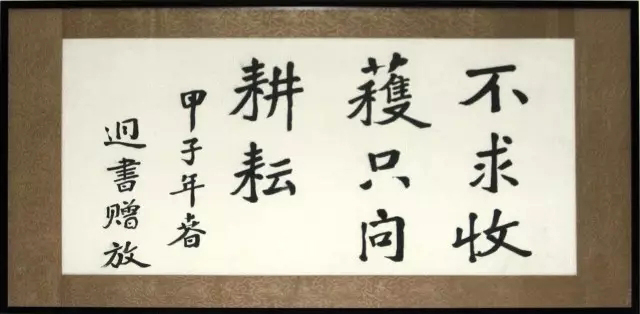 不求收
蒦只向
耕耘
甲子年春
迥書赠放